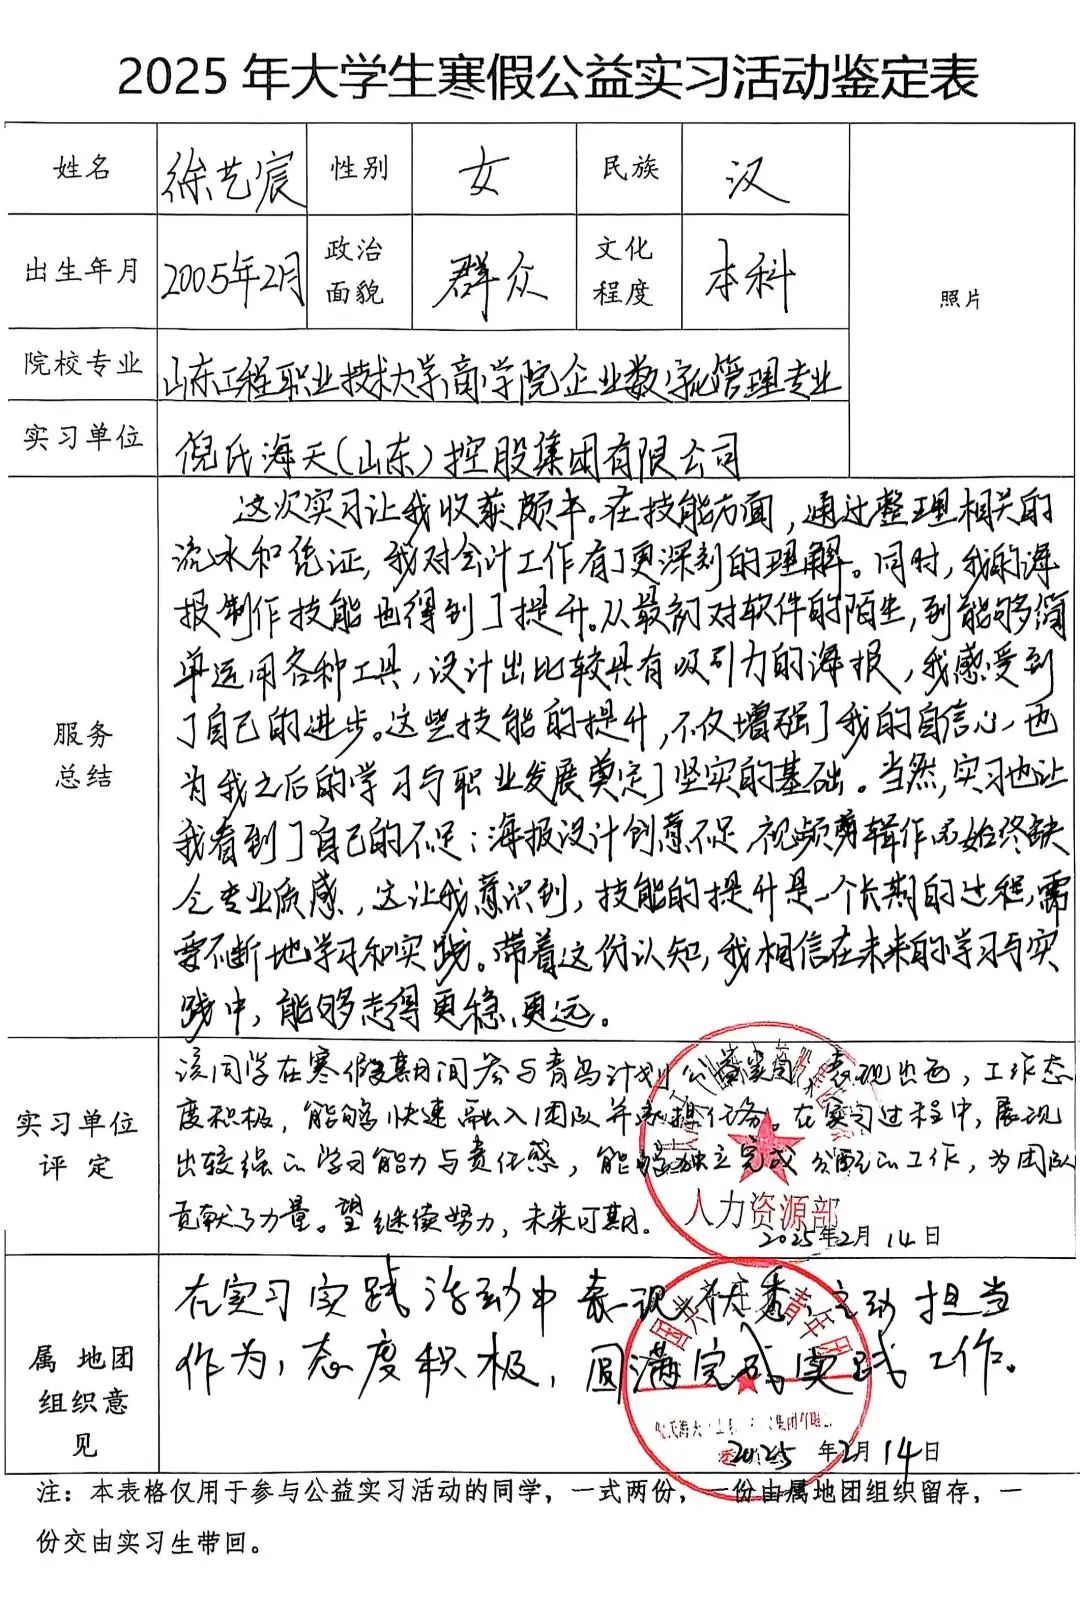 2025年大学生寒假公益实习活动鉴定表
姓名 徐艺宸 性别 女 民族 汉
出生年月 2005年2月 政治面貌 群众 文化程度 本科 照片
院校专业 山东工程职业技术大学商学院企业数字化管理专业
实习单位 倪氏海天(山东)控股集团有限公司
服务总结
这次实习让我收获颇丰。在技能方面,通过整理相关的
流水和凭证,我对会计工作有了更深刻的理解。同时,我的海
报制作技能也得到了提升。从最初对软件的陌生,到能够简
单运用各种工具,设计出比较具有吸引力的海报,我感受到
了自己的进步。这些技能的提升,不仅增强了我的自信心,也
为我之后的学习与职业发展奠定了坚实的基础。当然,实习也让
我看到了自己的不足:海报设计创意不足,视频剪辑作品始终缺
乏专业质感,这让我意识到,技能的提升是一个长期的过程,需
要不断地学习和实践。带着这份认知,我相信在未来的学习与实
践中,能够走得更稳、更远。
实习单位评定
该同学在寒假期间参与青鸟计划公益实习,表现出色,工作态
度积极,能够快速融入团队并承担任务。在实习过程中,展现
出较强的学习能力与责任感,能够独立完成分配的工作,为团队
贡献了力量。望继续努力,未来可期。
人力资源部
2025年2月14日
属地团组织意见
在实习实践活动中表现优秀,主动担当
作为,态度积极,圆满完成实践工作。
2025年2月14日
注：本表格仅用于参与公益实习活动的同学，一式两份，一份由属地团组织留存，一
份交由实习生带回。